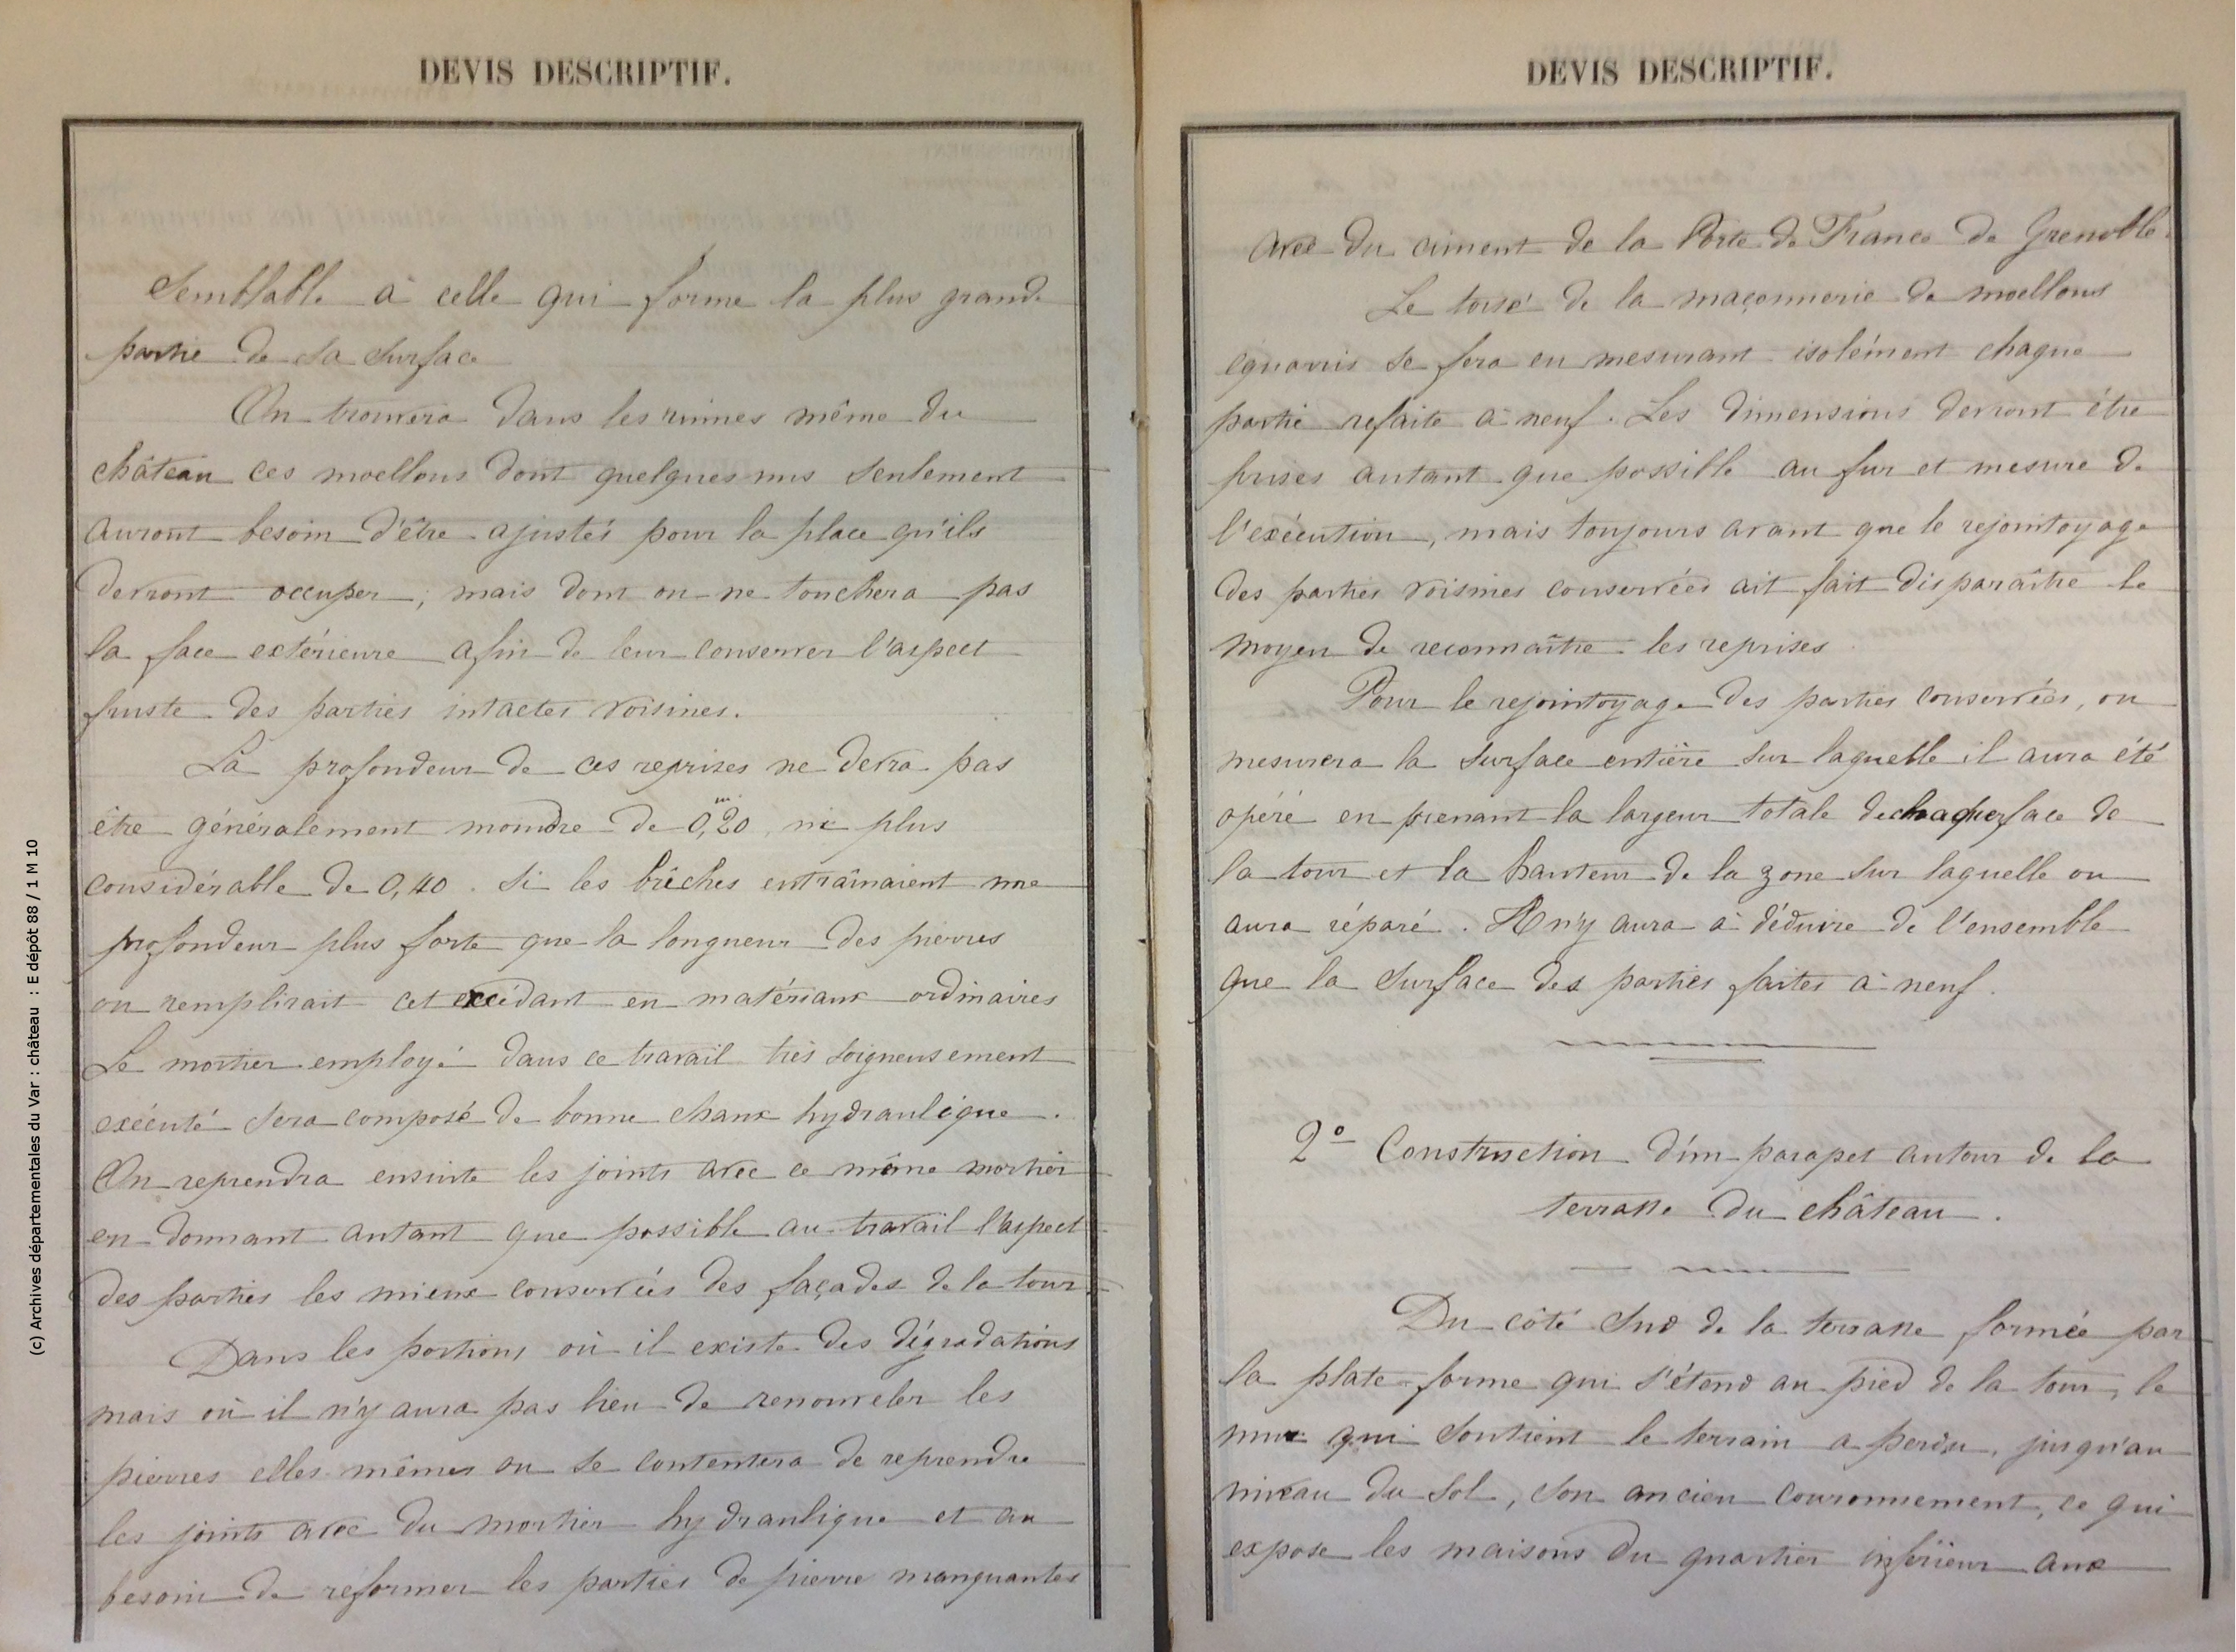 DEVIS DESCRIPTIF.
Semblable à celle qui forme la plus grande
partie de sa surface
On trouvera dans les ruines même du
château ces moellons dont quelques-uns seulement
auront besoin d'être ajustés pour la place qu'ils
devront occuper, mais dont on ne touchera pas
la face extérieure afin de leur conserver l'aspect
fruste des parties intactes voisines.
La profondeur de ces reprises ne devra pas
être généralement moindre de 0,20 m ni plus
considérable de 0,40. Si les brêches entraînaient une
profondeur plus forte que la longueur des pierres
on remplirait cet excédant en matériaux ordinaires
Le mortier employé dans ce travail très soigneusement
exécuté sera composé de bonne chaux hydraulique.
On reprendra ensuite les joints avec ce même mortier
en donnant autant que possible au travail l'aspect
des parties les mieux conservées des façades de la tour.
Dans les portions où il existe des dégradations
mais où il n'y aura pas lieu de renouveler les
pierres elles mêmes on se contentera de reprendre
les joints avec du mortier hydraulique et au
besoin de reformer les parties de pierre manquantes
(c) Archives départementales du Var : château : E dépôt 88 / 1 M 10
DEVIS DESCRIPTIF.
avec du ciment de la Porte de France de Grenoble.
Le toisé de la maçonnerie de moellons
équarris se fera en mesurant isolément chaque
partie refaite à neuf. Les dimensions devront être
prises autant que possible au fur et mesure de
l'exécution, mais toujours avant que le rejointoyage
des parties voisines conservées ait fait disparaître le
moyen de reconnaître les reprises.
Pour le rejointoyage des parties conservées, on
mesurera la surface entière sur laquelle il aura été
opéré en prenant la largeur totale de chaque face de
la tour et la hauteur de la zone sur laquelle on
aura réparé. Il n'y aura à déduire de l'ensemble
que la surface des parties faites à neuf.
2° Construction d'un parapet autour de la
terrasse du château.
Du côté Sud de la terrasse formée par
la plate-forme qui s'étend au pied de la tour, le
mur qui soutient le terrain a perdu, jusqu'au
niveau du sol, son ancien couronnement, ce qui
expose les maisons du quartier inférieur aux